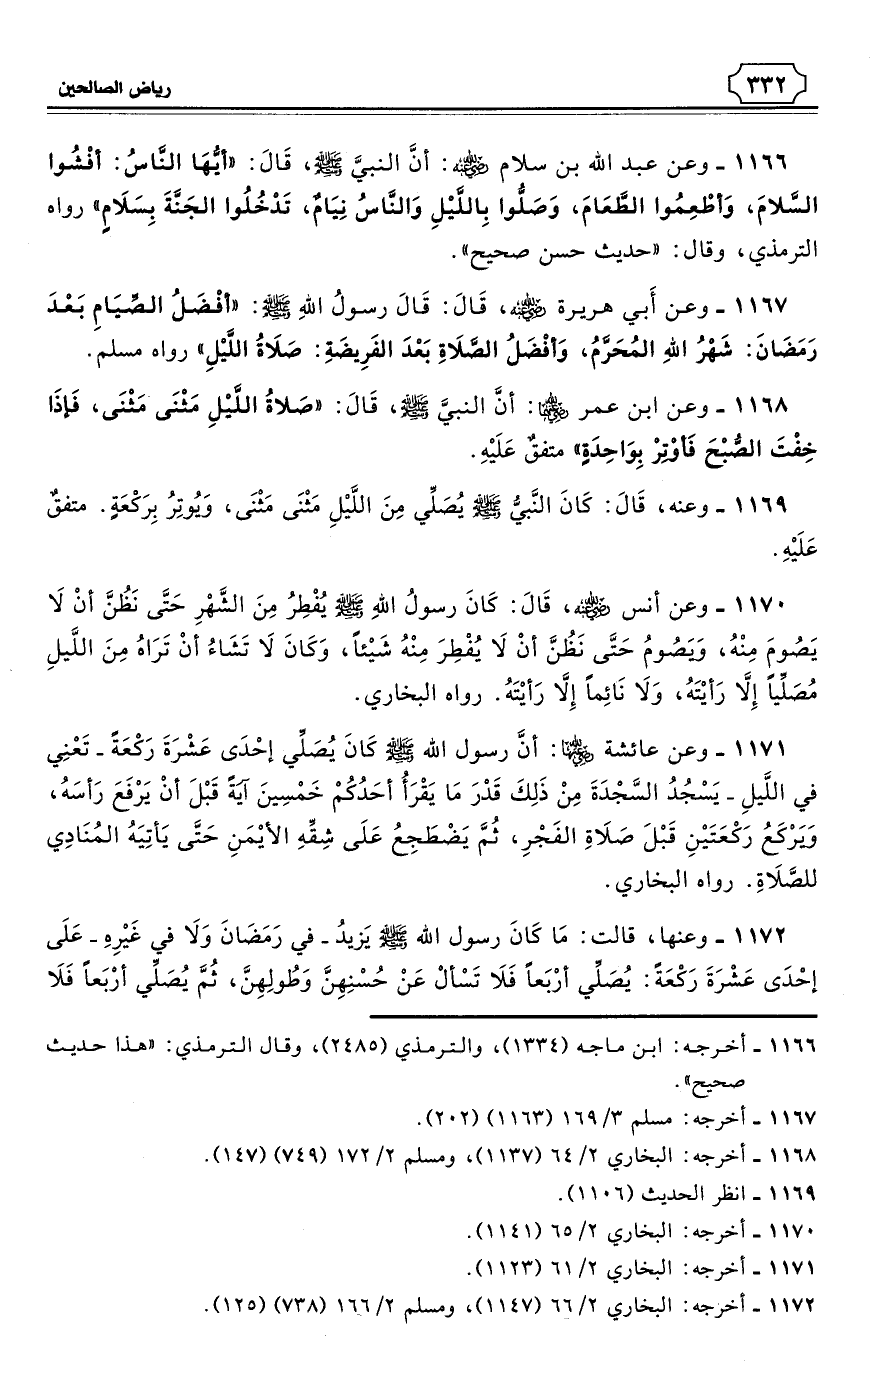 ٣٣٢
رياض الصالحين
١١٦٦ ـ وعن عبد الله بن سلام رضي الله عنه: أنَّ النبيَّ ﷺ، قَالَ: «أيُّهَا النَّاسُ: أفْشُوا
السَّلامَ، وَأطْعِمُوا الطَّعَامَ، وَصَلُّوا بِاللَّيْلِ وَالنَّاسُ نِيَامٌ، تَدْخُلُوا الجَنَّةَ بِسَلَامٍ» رواه
الترمذي، وقال: «حديث حسن صحيح».
١١٦٧ ـ وعن أَبي هريرة رضي الله عنه، قَالَ: قَالَ رسولُ اللهِ ﷺ: «أفْضَلُ الصِّيَامِ بَعْدَ
رَمَضَانَ: شَهْرُ اللهِ المُحَرَّمُ، وَأفْضَلُ الصَّلَاةِ بَعْدَ الفَرِيضَةِ: صَلَاةُ اللَّيْلِ» رواه مسلم.
١١٦٨ ـ وعن ابن عمر رضي الله عنهما: أنَّ النبيَّ ﷺ، قَالَ: «صَلاةُ اللَّيْلِ مَثْنَى مَثْنَى، فَإذَا
خِفْتَ الصُّبْحَ فَأوْتِرْ بِوَاحِدَةٍ» متفقٌ عَلَيْهِ.
١١٦٩ ـ وعنه، قَالَ: كَانَ النَّبيُّ ﷺ يُصَلِّي مِنَ اللَّيْلِ مَثْنَى مَثْنَى، وَيُوتِرُ بِرَكْعَةٍ. متفقٌ
عَلَيْهِ.
١١٧٠ ـ وعن أنس رضي الله عنه، قَالَ: كَانَ رسولُ اللهِ ﷺ يُفْطِرُ مِنَ الشَّهْرِ حَتَّى نَظُنَّ أنْ لَا
يَصُومَ مِنْهُ، وَيَصُومُ حَتَّى نَظُنَّ أنْ لَا يُفْطِرَ مِنْهُ شَيْئاً، وَكَانَ لَا تَشَاءُ أنْ تَرَاهُ مِنَ اللَّيلِ
مُصَلِّياً إِلَّا رَأيْتَهُ، وَلَا نَائِماً إِلَّا رَأيْتَهُ. رواه البخاري.
١١٧١ ـ وعن عائشة رضي الله عنها: أنَّ رسول الله ﷺ كَانَ يُصَلِّي إحْدَى عَشْرَةَ رَكْعَةً ـ تَعْنِي
في اللَّيلِ ـ يَسْجُدُ السَّجْدَةَ مِنْ ذَلِكَ قَدْرَ مَا يَقْرَأُ أحَدُكُمْ خَمْسِينَ آيَةً قَبْلَ أنْ يَرْفَعَ رَأسَهُ،
وَيَرْكَعُ رَكْعَتَيْنِ قَبْلَ صَلَاةِ الفَجْرِ، ثُمَّ يَضْطَجِعُ عَلَى شِقِّهِ الأيْمَنِ حَتَّى يَأتِيَهُ المُنَادِي
للصَّلَاةِ. رواه البخاري.
١١٧٢ ـ وعنها، قالت: مَا كَانَ رسول الله ﷺ يَزِيدُ ـ في رَمَضَانَ وَلَا في غَيْرِهِ ـ عَلَى
إحْدَى عَشْرَةَ رَكْعَةً: يُصَلِّي أرْبَعاً فَلَا تَسْألْ عَنْ حُسْنِهِنَّ وَطُولِهِنَّ، ثُمَّ يُصَلِّي أرْبَعاً فَلَا
١١٦٦ ـ أخرجه: ابن ماجه (١٣٣٤)، والترمذي (٢٤٨٥)، وقال الترمذي: «هذا حديث
صحيح».
١١٦٧ ـ أخرجه: مسلم ٣/ ١٦٩ (١١٦٣) (٢٠٢).
١١٦٨ ـ أخرجه: البخاري ٢/ ٦٤ (١١٣٧)، ومسلم ٢/ ١٧٢ (٧٤٩) (١٤٧).
١١٦٩ ـ انظر الحديث (١١٠٦).
١١٧٠ ـ أخرجه: البخاري ٢/ ٦٥ (١١٤١).
١١٧١ ـ أخرجه: البخاري ٢/ ٦١ (١١٢٣).
١١٧٢ ـ أخرجه: البخاري ٢/ ٦٦ (١١٤٧)، ومسلم ٢/ ١٦٦ (٧٣٨) (١٢٥).